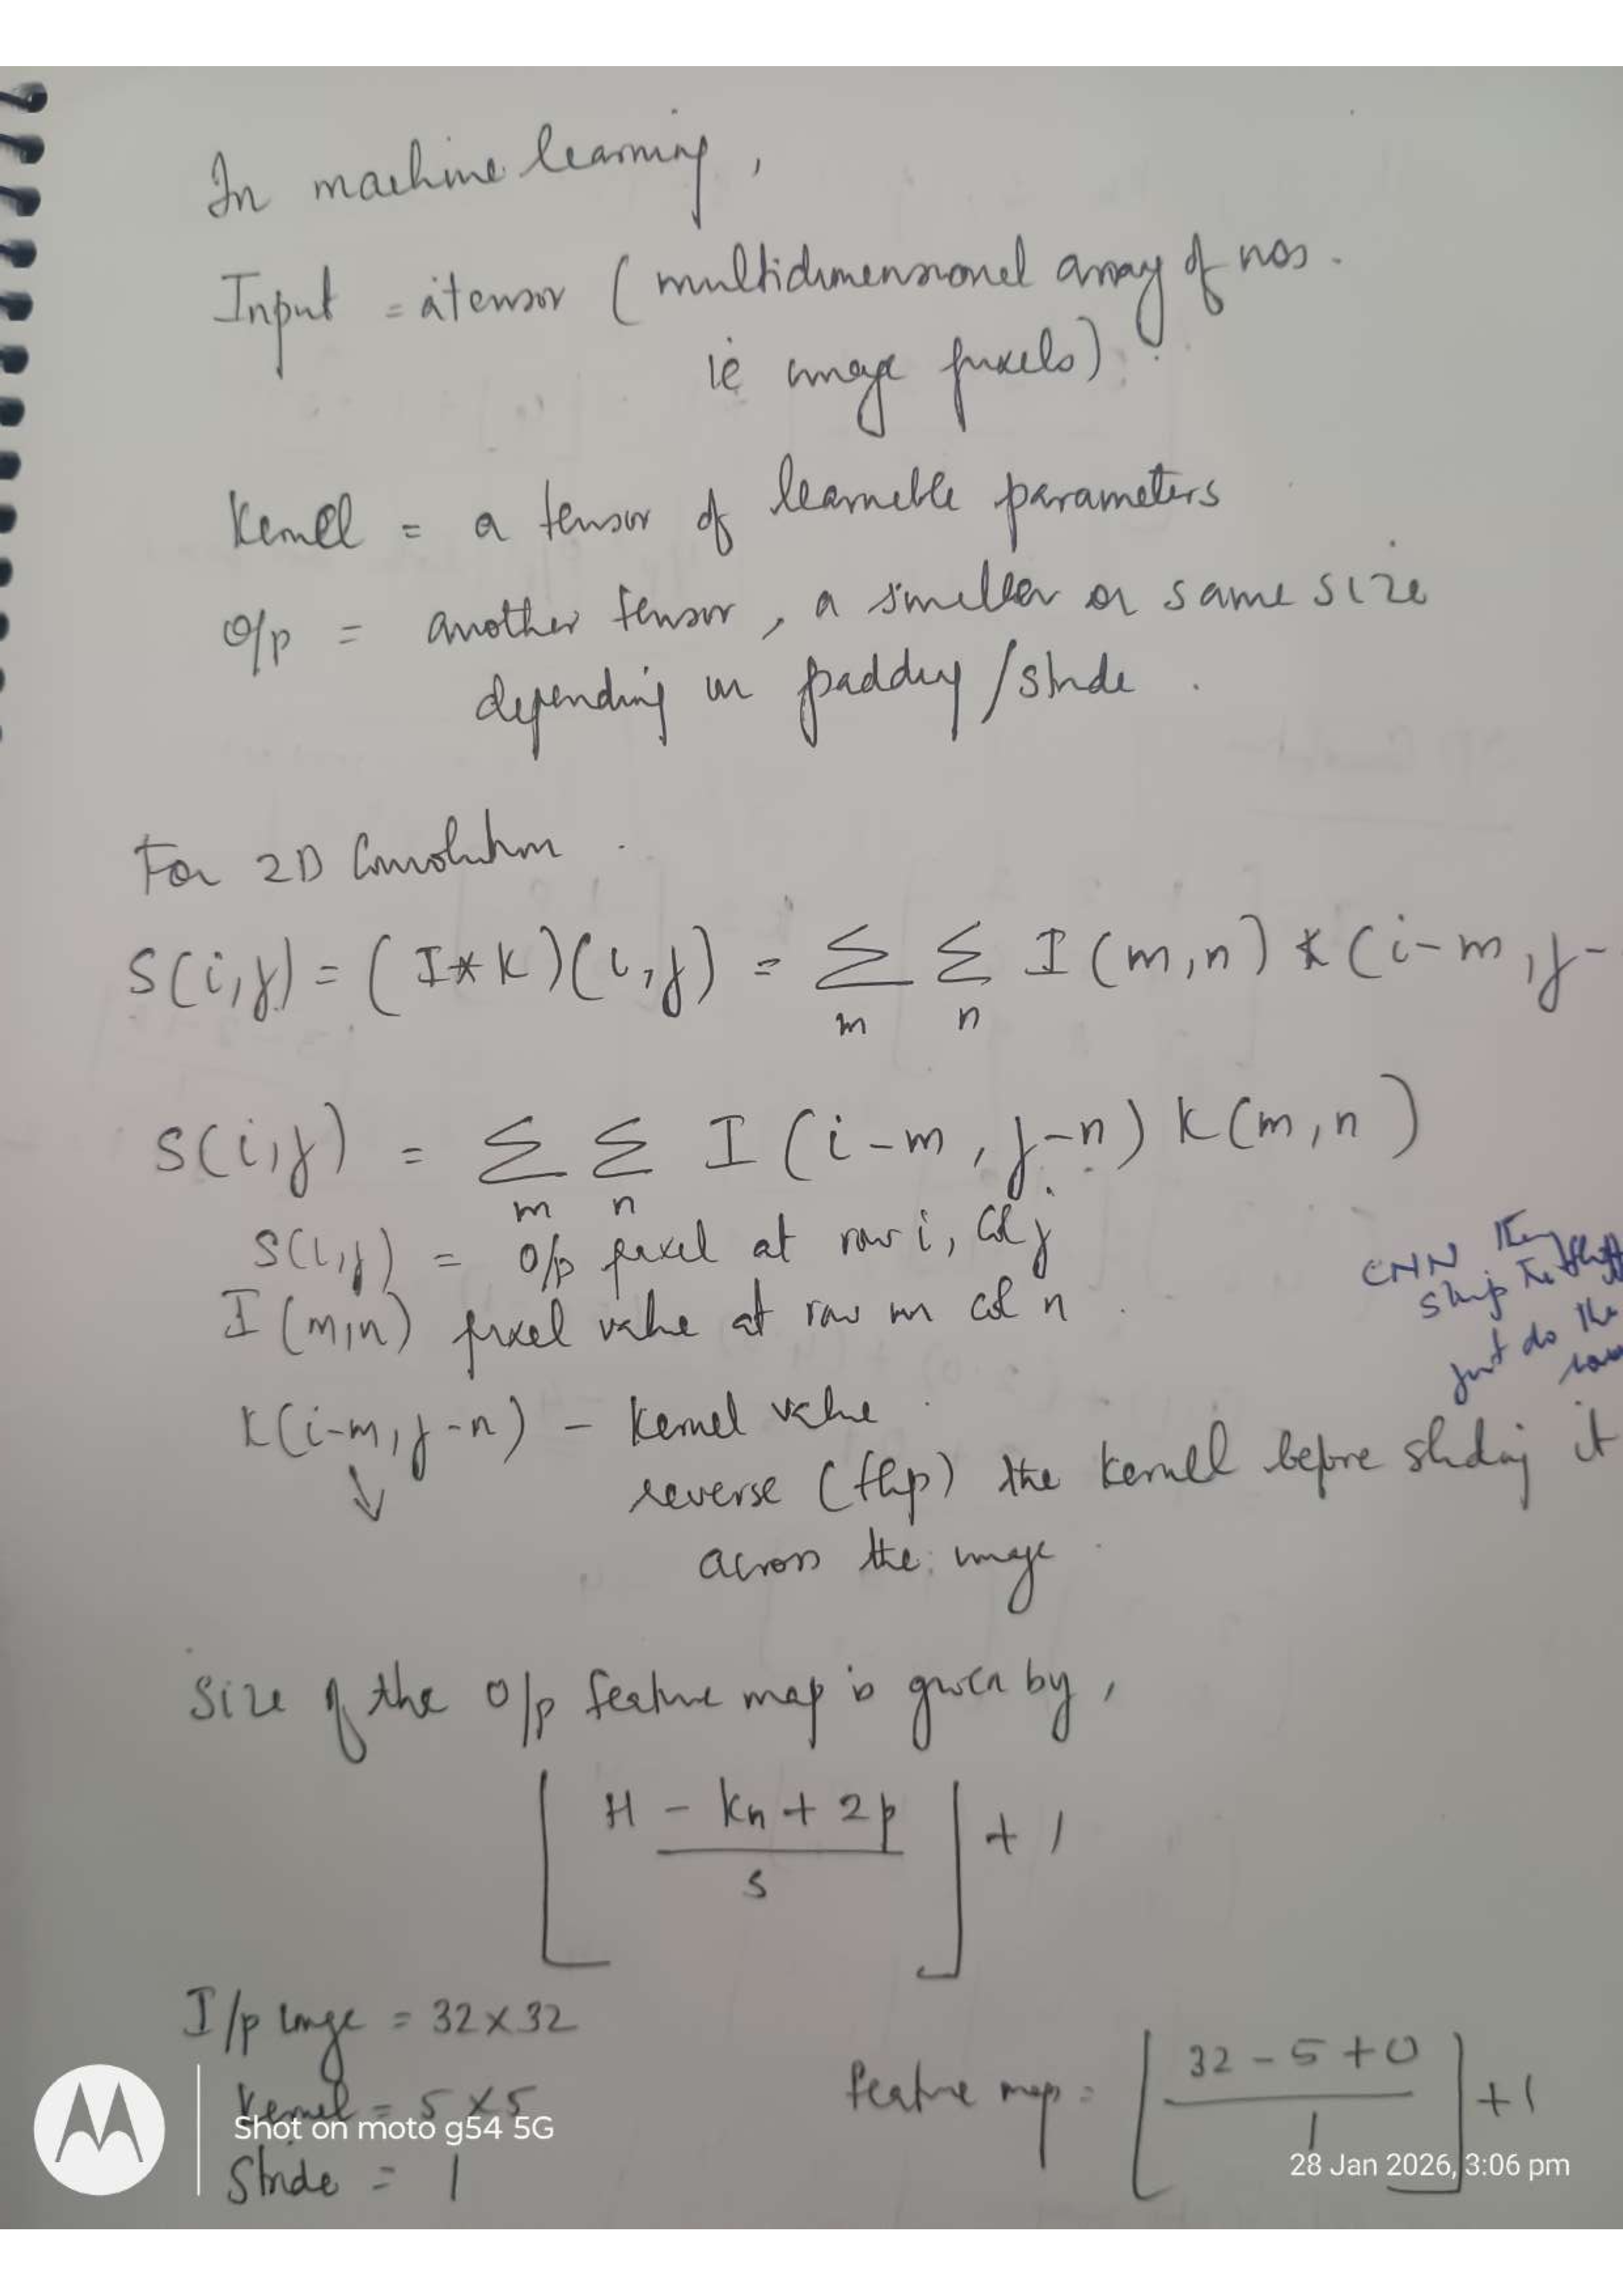 In machine learning,
Input = a tensor ( multidimensional array of nos.
ie image pixels)
Kernel = a tensor of learnable parameters
O/p = another tensor, a smaller or same size
depending on padding/stride.
For 2D Convolution.
S(i,j) = (I*K)(i,j) = Σ Σ I(m,n) K(i-m, j-
m n
S(i,j) = Σ Σ I(i-m, j-n) K(m,n)
m n
S(i,j) = o/p pixel at row i, col j
I(m,n) pixel value at row m col n.
CNN
skip the
just do the
K(i-m, j-n) - Kernel value.
↓ reverse (flip) the kernel before sliding it
across the image.
Size of the o/p feature map is given by,
⌊ (H - Kh + 2p) / s ⌋ + 1
I/p image = 32×32
Kernel = 5×5
Stride = 1
feature map = ⌊ (32 - 5 + 0) / 1 ⌋ + 1
Shot on moto g54 5G
28 Jan 2026, 3:06 pm